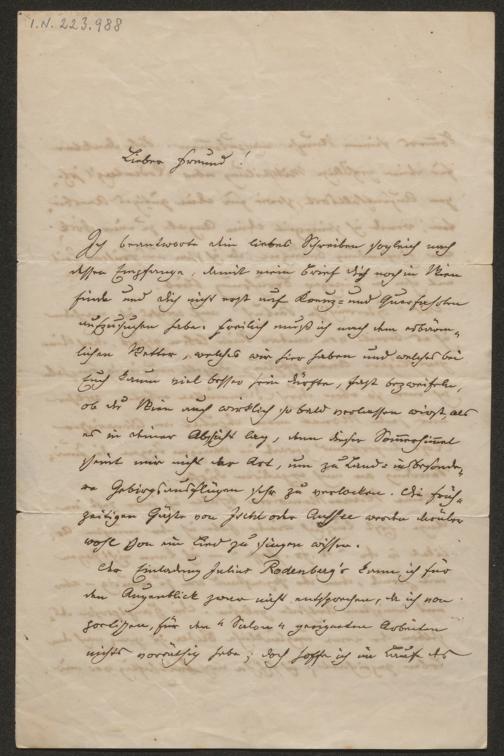 I.N. 223.988
Lieber Freund!
Ich beantworte dein liebes Schreiben sogleich nach
dessen Empfange, damit mein Brief dich noch in Wien
finde und dich nicht erst auf Kreuz= und Querfahrten
aufzusuchen habe. Freilich muß ich nach dem erbärm-
lichen Wetter, welches wir hier haben und welches bei
Euch kaum viel besser sein dürfte, fast bezweifeln,
ob du Wien auch wirklich so bald verlassen wirst, als
es in deiner Absicht lag, denn dieser Sommerhimmel
scheint mir nicht der Art, um zu Land= insbesonde-
re Gebirgsausflügen sehr zu verlocken. Die früh-
zeitigen Gäste von Ischl oder Aussee werden darüber
wohl schon ein Lied zu singen wissen.
Der Einladung Julius Rodenberg's kann ich für
den Augenblick zwar nicht entsprechen, da ich von
, für den "Salon" geeigneten Arbeiten
nichts vorräthig habe; doch hoffe ich im Laufe des